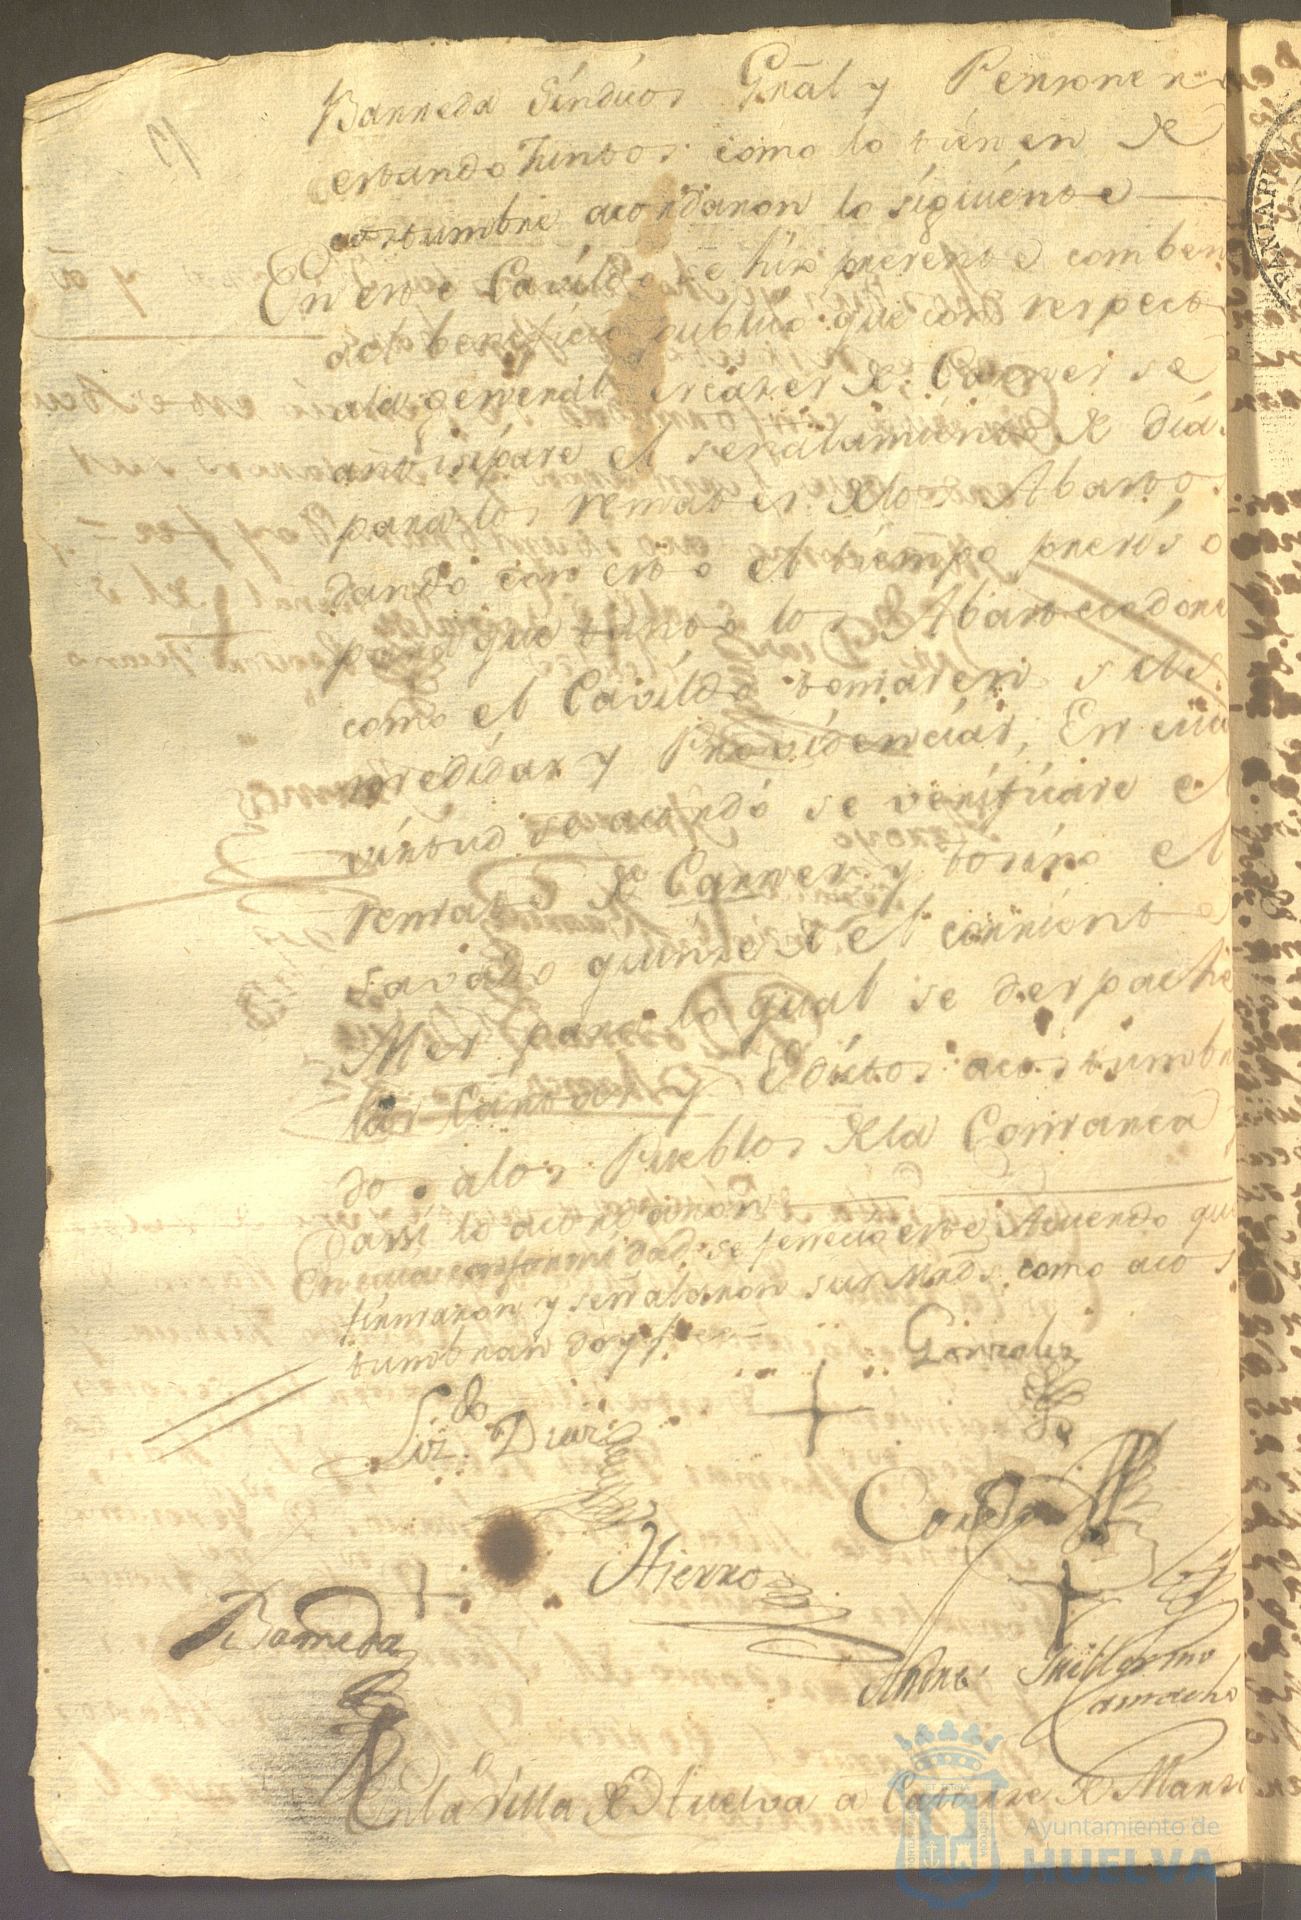 Barreda Síndicos Grãl y Personer
estando Juntos como lo tienen de
costumbre acordaron lo siguiente
En este Cavildo se hizo presente comben
al beneficio publico que con respecto
ala general escazes de Carnes se
antisipase el señalamiento de días
para los remates delos Abastos
dando con esto el tiempo presiso
para que tanto los Abastecedore
como el Cavildo tomasen sus
medidas y Providencias, En cuia
virtud se acordó se verificase el
remate de Carnes y tosino el
savado quinse del corriente
Mes para lo qual se despache
las Cartas y Edictos acostumbra
dos alos Pueblos dela Comarca
y assi lo acordaron
En cuia conformidad se fenecio este Acuerdo que
firmaron y señalaron sus Mrds. como acos
tumbran doy fee=
Gonzales
Lizdo. Diaz
Hierro
Barreda
Andres Guillermo
Camacho
En la Villa de Huelva a Catorse de Marzo
Ayuntamiento de
HUELVA